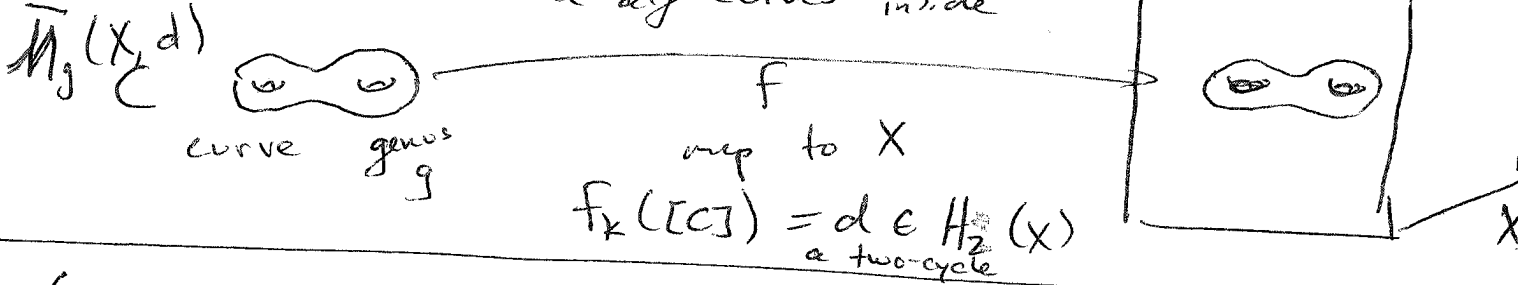 inside
M̄_g(X, d)
C
f
X
curve genus g
map to X
f_*([C]) = d ∈ H_2(X)
a two-cycle